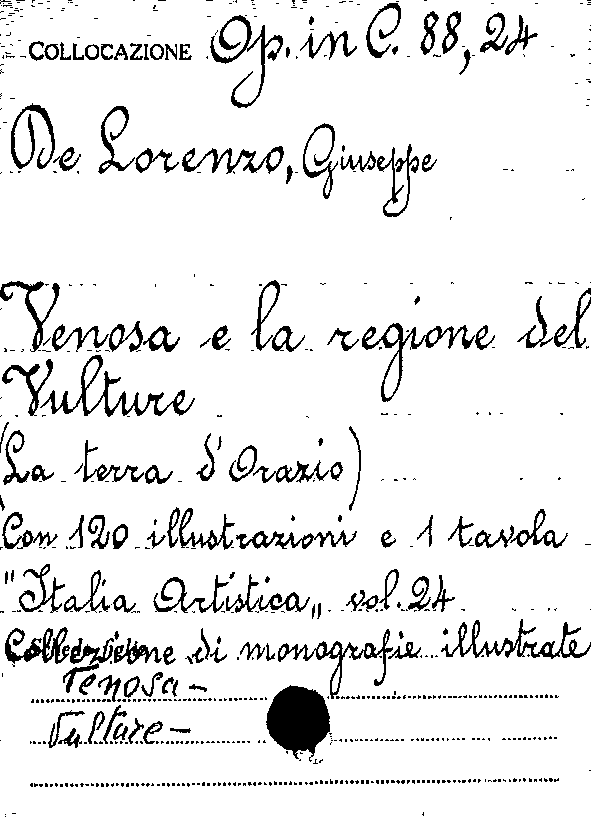 COLLOCAZIONE Op. in C. 88, 24
De Lorenzo, Giuseppe
Venosa e la regione del
Vulture
(La terra d'Orazio)
Con 120 illustrazioni e 1 tavola
"Italia Artistica„ vol. 24
Collezione di monografie illustrate
Venosa –
Vulture –